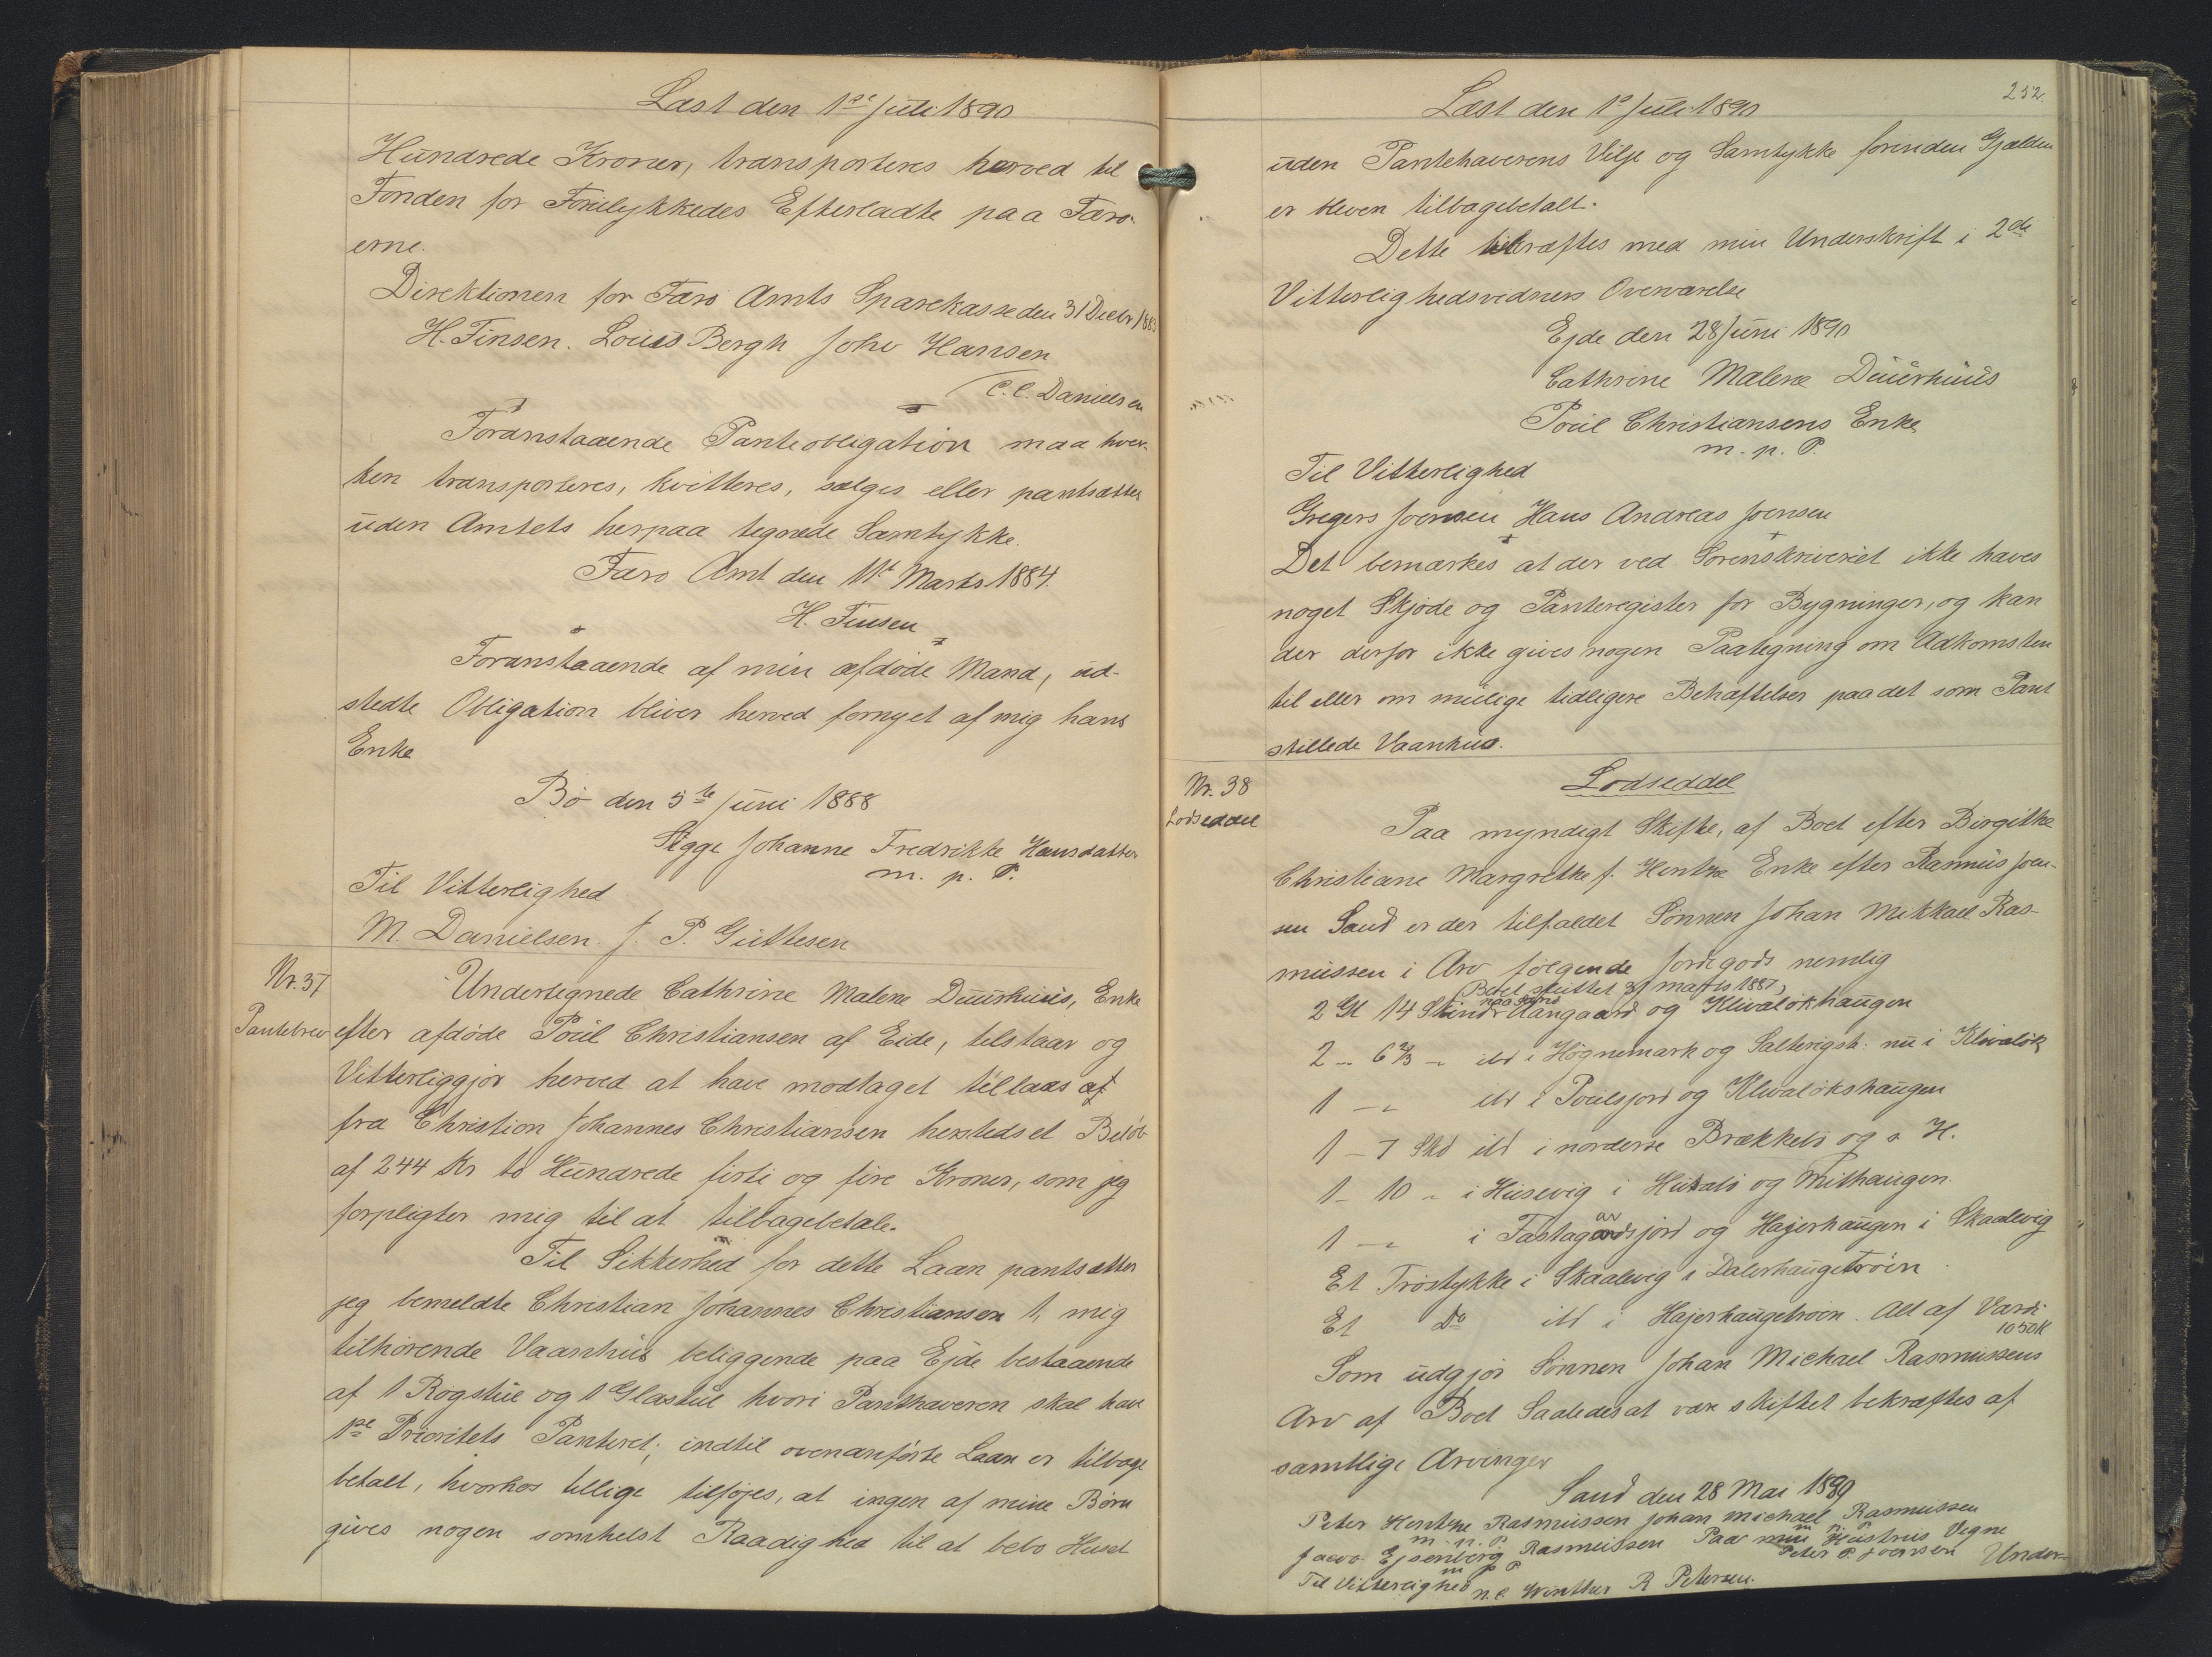 Læst den 1ste Juli 1890
Hundrede Kroner, transporteres herved til
Fonden for Forulykkedes Efterladte paa Færø-
erne.
Direktionen for Færø Amts Sparekasse den 31 Decbr 1883
H. Finsen. Louis Bergh John Hansen
C. C. Danielsen
Foranstaaende Panteobligation maa hver-
ken transporteres, kvitteres, sælges eller pantsættes
uden Amtets herpaa tegnede Samtykke.
Færø Amt den 11te Marts 1884.
H. Finsen
Foranstaaende af min afdøde Mand, ud-
stedte Obligation bliver herved fornyet af mig hans
Enke
Bø den 5te Juni 1888
Sigge Johanne Fredrikke Hansdatter
m. p. P.
Til Vitterlighed
M. Danielsen. J. P. Guttesen
Nr. 37
Pantebrev
Undertegnede Cathrine Malene Duurhuus, Enke
efter afdøde Poul Christiansen af Eide, tilstaar og
Vitterliggjør herved at have modtaget tillaans af
fra Christian Johannes Christiansen herstedset Beløb
af 244 Kr to Hundrede firti og fire Kroner, som jeg
forpligter mig til at tilbagebetale.
Til Sikkerhed for dette Laan pantsætter
jeg bemeldte Christian Johannes Christiansen 1, mig
tilhørende Vaanhus beliggende paa Ejde bestaaende
af 1 Røgstue og 1 Glastue hvori Panthaveren skal have
1ste Prioritets Panteret; indtil ovenanførte Laan er tilbage
betalt, hvorhos tillige tilføjes, at ingen af mine Børn
gives nogen somhelst Raadighed til at bebo Huset
252.
Læst den 1ste Juli 1890
uden Pantehaverens Vilje og Samtykke forinden Gjælden
er bleven tilbagebetalt.
Dette bekræftes med min Underskrift i 2de
Vitterlighedsvidners Overværelse
Ejde den 28 Juni 1890
Cathrine Malene Duurhuus
Poul Christiansens Enke
m. p. P.
Til Vitterlighed
Gregers Joensen Hans Andreas Joensen
Det bemærkes at der ved Sorenskriveriet ikke haves
noget Skjøde og Panteregister for Bygninger, og kan
der derfor ikke gives nogen Paategning om Adkomsten
til eller om mulige tidligere Behæftelser paa det som Pant
stillede Vaanhus.
Nr. 38
Lodseddel
Lodseddel
Paa myndigt Skifte, af Boet efter Birgitte
Christiane Margrethe f. Hentze Enke efter Rasmus Joen-
sen Sand er der tilfaldet Sønnen Johan Mikkael Ras-
mussen i Arv følgende Jordegods nemlig
Boet sluttet 31 marts 1887,
2 Gl 14 Skind paa Sand Aangaard og Klivaløkhaugen
2 - 6 2/3 - ibd i Høgnemark og Salterigst: nu i Klivaløk
1 - " ibd i Poulsjord og Klivaløkshaugen
1 - 7 Skd ibd i nordere Brækkebø og o. H.
1 - 10 - i Husevig i Husabø og Mithaugen.
1 - " i Tastagardsjord og Hajerhaugen i Skaalevig
Et Trøstykke i Skaalevig i Dalerhaugetrøen
Et Do ibd i Hajerhaugetrøen. Alt af Værdi
1050K
Som udgjør Sønnen Johan Michael Rasmussens
Arv af Boet Saaledes at være skiftet bekræftes af
samtlige Arvinger
Sand den 28 Mai 1889
Peter Hentze Rasmussen Johan Michael Rasmussen
m. p. P. m. p. P.
Jacob Ejsenberg Rasmussen Paa min Hustrus Vegne
m p P Peter P. Joensen
Til Vitterlighed N. C. Winther R Petersen. Under-